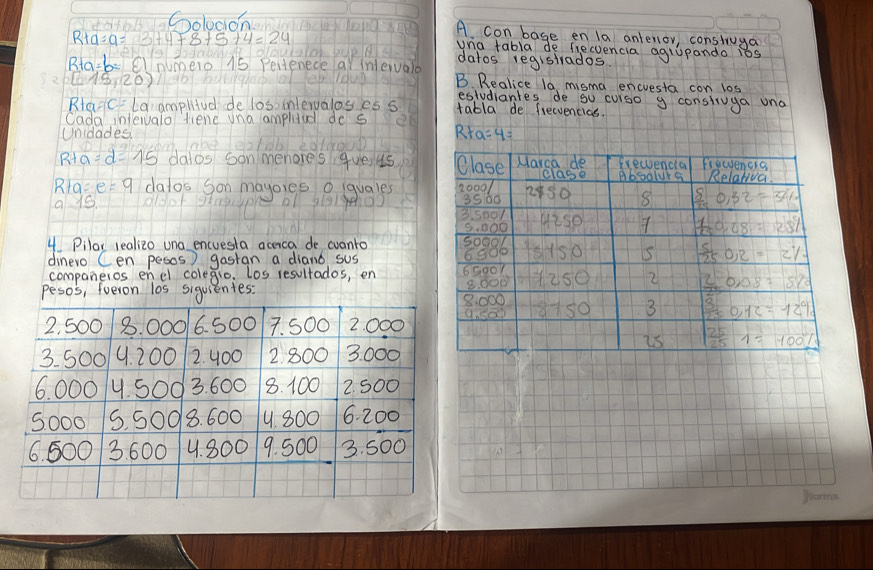 Solución
Rta=a= 3+4+8+5+4=24
Rta=b= El numero 15 Pertenece al intervalo
(15,20)
Rta=C= La amplitud de los intervalos es 5
Cada intervalo tiene una amplitud de 5
Unidades
Rta=d= 15 datos son menores que 15
Rta=e= 9 datos son mayores o iguales
a 15.
4. Pilar realizo una encuesta acerca de cuanto
dinero (en pesos) gastan a diario sus
compañeros en el colegio. Los resultados, en
pesos, fueron los siguientes:
2.500 8.000 6.500 7.500 2.000
3.500 4.200 2.400 2.800 3.000
6.000 4.500 3.600 8.100 2.500
5.000 5.500 8.600 4.800 6.200
6.500 3.600 4.800 9.500 3.500
A. Con base en la anterior, construya
una tabla de frecuencia agrupando los
datos registrados.
B. Realice la misma encuesta con los
estudiantes de su curso y construya una
tabla de frecuencias.
Rta=4=
Clase Marca de clase Frecuencia Absoluta Frecuencia Relativa.
2000/3500 8 0,32=
3.500/5.000 4250 7 0,28=
5000/6500 5750 5 5/25 0,2=
6500/8.000 7250 2 0,08=
8.000 8750 3 0,12=12%
25 25/25 1=100%